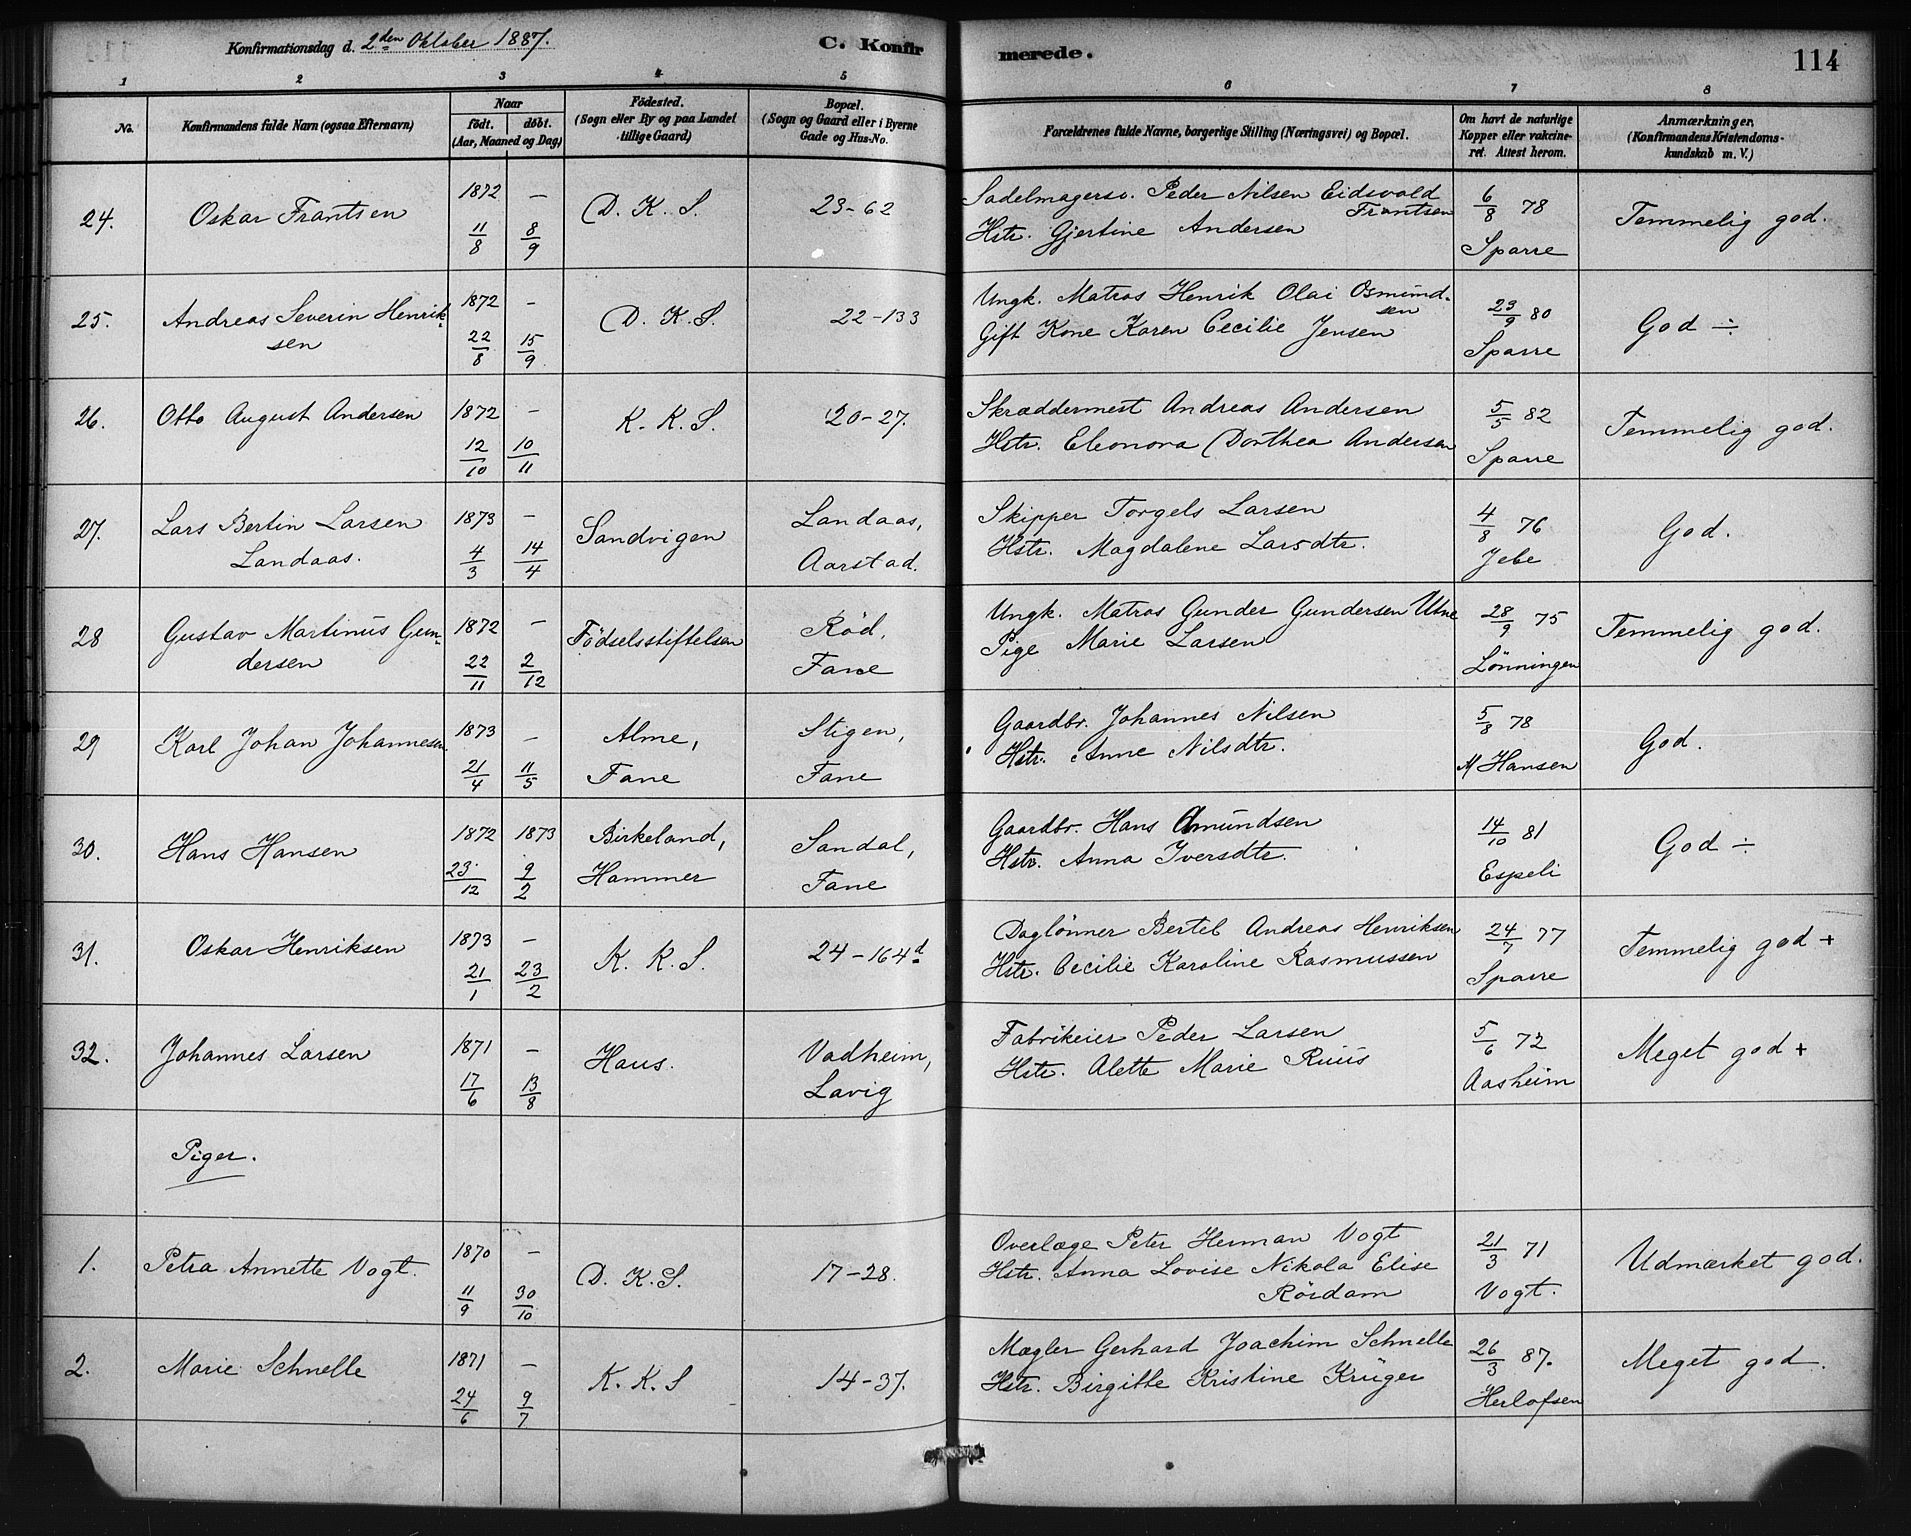 Konfirmationsdag d. 2den Oktober 1887.
C. Konfirmerede.
114
1 2 3 4 5 6 7 8
No.
Konfirmandens fulde Navn (ogsaa Efternavn)
Naar
födt. döbt.
(Aar, Maaned og Dag)
Födested.
(Sogn eller By og paa Landet
tillige Gaard)
Bopæl.
(Sogn og Gaard eller i Byerne
Gade og Hus-No.
Forældrenes fulde Navne, borgerlige Stilling (Næringsvei) og Bopæl.
Om havt de naturlige
Kopper eller vakcine-
ret. Attest herom.
Anmærkninger,
(Konfirmandens Kristendoms-
kundskab m. V.)
24. Oskar Frantsen 1872 11/8 — 8/9 D. K. S. 23-62
Sadelmagersv. Peder Nilsen Eidsvold Frantsen
Hstr. Gjertine Andersen
6/8 78 Sparre Temmelig god.
25. Andreas Severin Henrik-
sen 1872 22/8 — 15/9 D. K. S. 22-133
Ungk. Matros Henrik Olai Osmund-
sen
Gift Kone Karen Cecilie Jensen
23/9 80 Sparre God ÷
26. Otto August Andersen 1872 12/10 — 10/11 K. K. S. 20-27.
Skræddermest Andreas Andersen
Hstr. Eleonora Dorthea Andersen
5/5 82 Sparre Temmelig god.
27. Lars Bertin Larsen
Landaas. 1873 4/3 — 14/4 Sandvigen Landaas,
Aarstad.
Skipper Torgels Larsen
Hstr. Magdalene Larsdtr.
4/8 76 Jebe God.
28 Gustav Martinus Gun-
dersen 1872 22/11 — 2/12 Födselsstiftelsen Röd,
Fane
Ungk. Matros Gunder Gundersen Utne
Pige Marie Larsen
28/9 75 Lönningen Temmelig god.
29 Karl Johan Johannesen. 1873 21/4 — 11/5 Alme,
Fane Stigen,
Fane
Gaardbr. Johannes Nilsen
Hstr. Anne Nilsdtr.
5/8 78 M Hansen God.
30. Hans Hansen 1872 23/12 1873 9/2 Birkeland,
Hammer Sandal,
Fane
Gaardbr. Hans Amundsen
Hstr. Anna Iversdtr.
14/10 81 Espeli God ÷
31. Oskar Henriksen 1873 21/1 — 23/2 K. K. S. 24-164d
Daglönner Bertel Andreas Henriksen
Hstr. Cecilie Karoline Rasmussen
24/7 77 Sparre Temmelig god +
32. Johannes Larsen 1871 17/6 — 13/8 Haus. Vadheim,
Lavig
Fabrikeier Peder Larsen
Hstr. Alette Marie Ruus
5/6 72 Aasheim Meget god +
Piger.
1. Petra Annette Vogt. 1870 11/9 — 30/10 D. K. S. 17-28.
Overlæge Peter Herman Vogt
Hstr. Anna Lovise Nikola Elise
Rördam
21/3 71 Vogt. Udmærket god.
2. Marie Schnelle 1871 24/6 — 9/7 K. K. S 14-37.
Mægler Gerhard Joachim Schnelle
Hstr. Birgitte Kristine Krüger
26/3 87. Herlofsen Meget god.